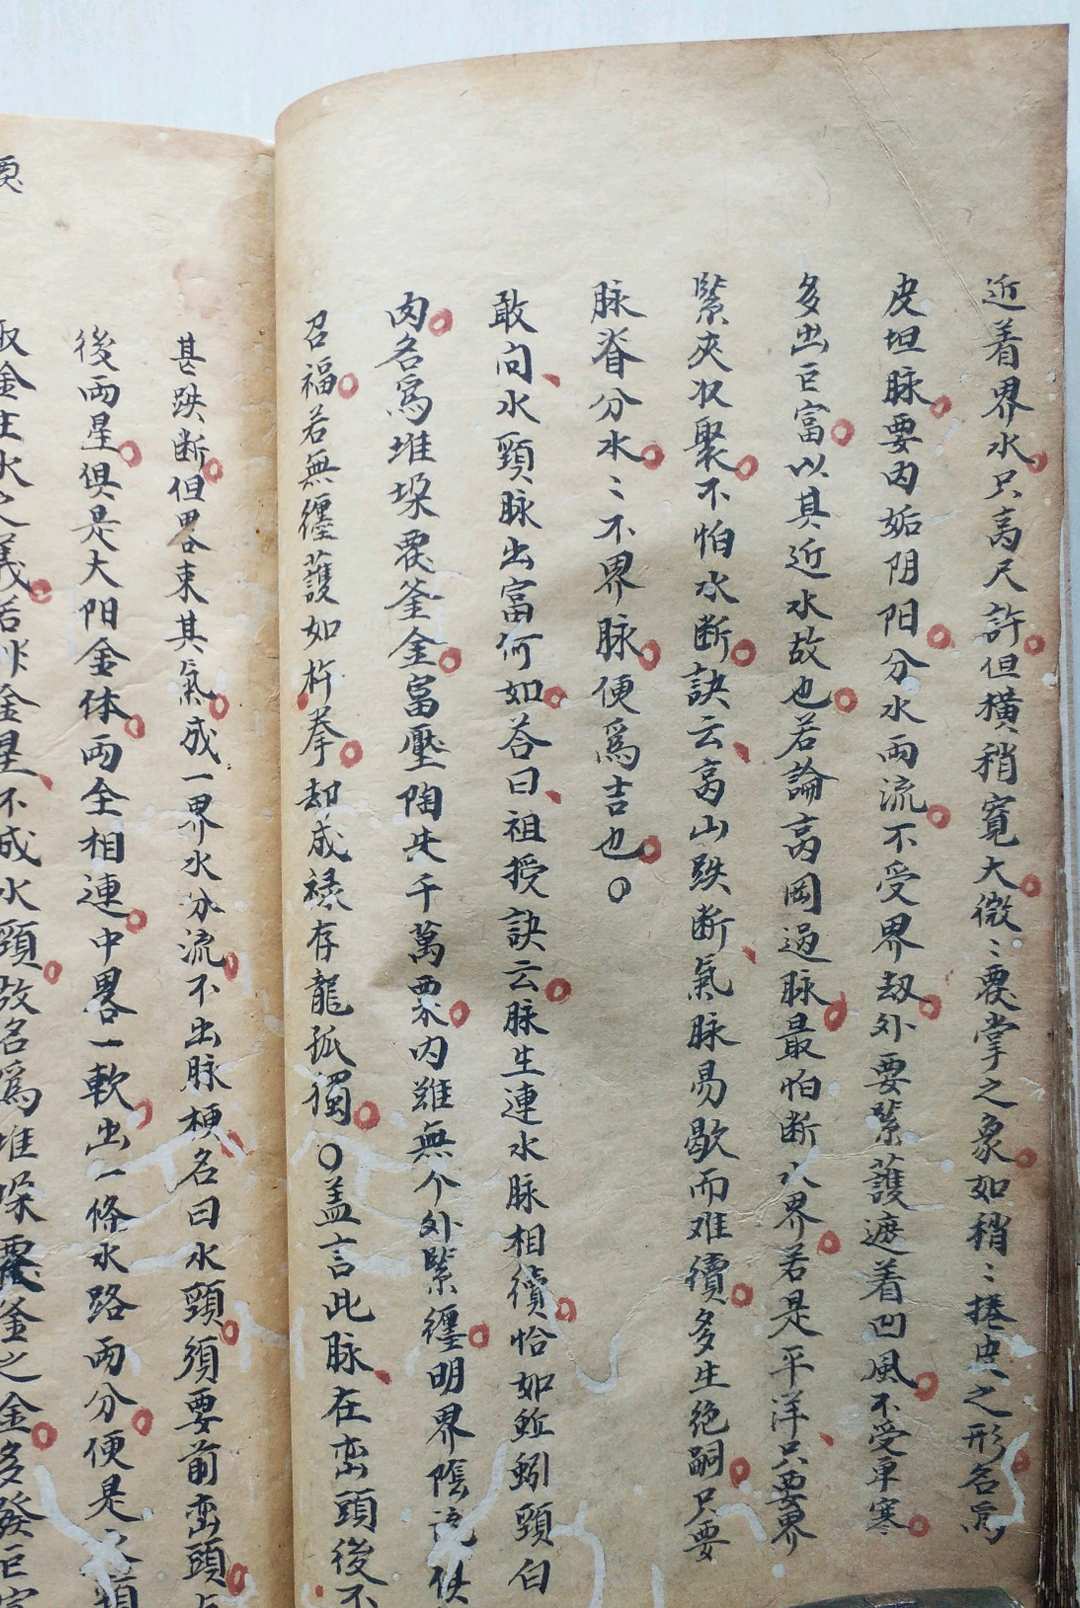 近着界水只高尺許但横稍寬大微〻覆掌之象如稍〻捲虫之形名為
皮坦脉要内姤阴阳分水兩流不受界刼外要緊護遮着凹風不受单寒
多出巨富以其近水故也若論高岡過脉最怕断界若是平洋只要界
緊夾收聚不怕水断訣云高山跌断氣脉易歇而难續多生绝嗣只要
脉脊分水〻不界脉便爲吉也
敢问水頸脉出富何如荅曰祖授訣云脉生連水脉相續恰如蚯蚓頸白
肉名爲堆垜覆釜金富壓陶朱千萬粟内雖無个外緊纒明界陰流
召福若無纒護如杵拳却成禄存龍孤獨○盖言此脉在峦頭後不
甚跌断但畧束其氣成一界水分流不出脉梗名曰水頸須要前峦頭
後两星俱是大阳金体两全相連中畧一軟出一條水路两分便是
金 水之義若非金星不成水頸故名爲堆垜覆釜之金多發巨富